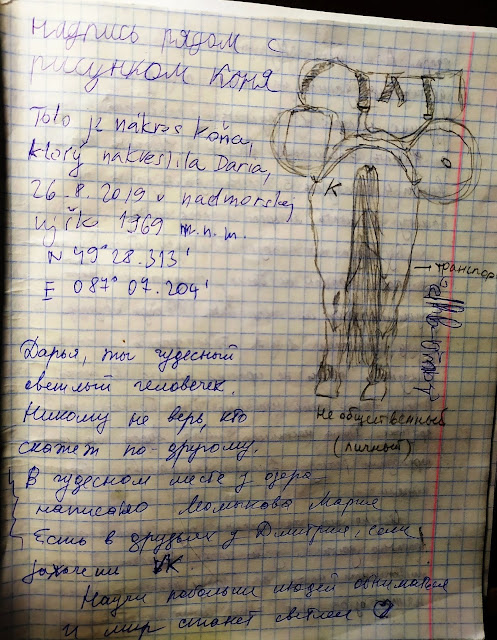 надпись рядом с
рисунком коня
Toto je nákres koňa,
ktorý nakreslila Daria,
26.8.2019 v nadmorskej
výške 1969 m.n.m.
N 49° 28.313'
E 087° 07.204'
К
О
→ транспор
Не общественный
(личный)
Дарья, ты чудесный
светлый человечек.
Никому не верь, кто
скажет по-другому.
В чудесном месте у озера
написано Мария
Есть в друзьях у Дмитрия, если
захочеши VK.
Научи побольше людей обниматься
и мир станет светлей